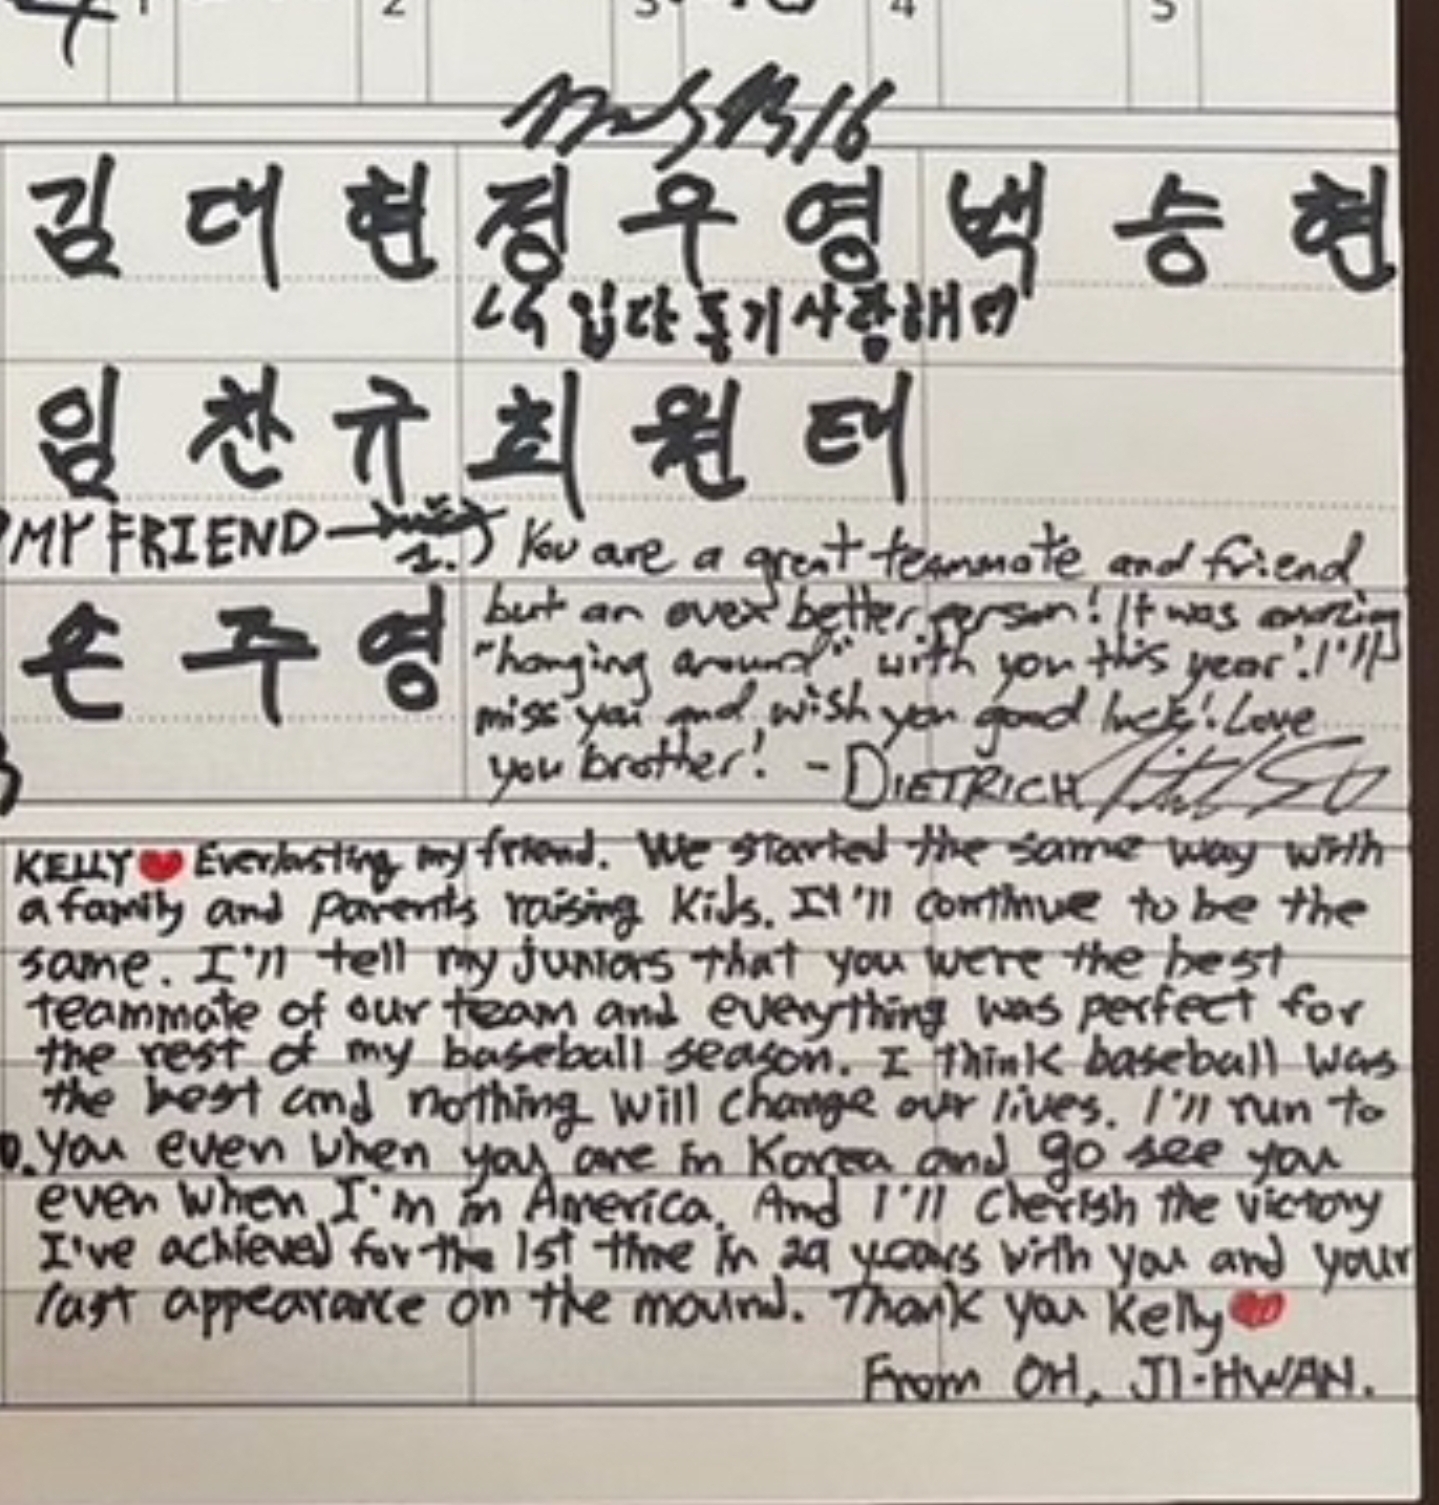 1 2 3 4 5
김대현 정우영 백승현
입단동기 사랑해
임찬규 최원태
MY FRIEND
You are a great teammate and friend
손주영
but an even better person! It was amazing
"hanging around" with you this year! I'll
miss you and wish you good luck! Love
you brother! - DIETRICH
KELLY❤ Everlasting my friend. We started the same way with
a family and parents raising kids. It'll continue to be the
same. I'll tell my juniors that you were the best
teammate of our team and everything was perfect for
the rest of my baseball season. I think baseball was
the best and nothing will change our lives. I'll run to
you even when you are in Korea and go see you
even when I'm in America. And I'll cherish the victory
I've achieved for the 1st time in 29 years with you and your
last appearance on the mound. Thank you Kelly❤
From OH, JI-HWAN.